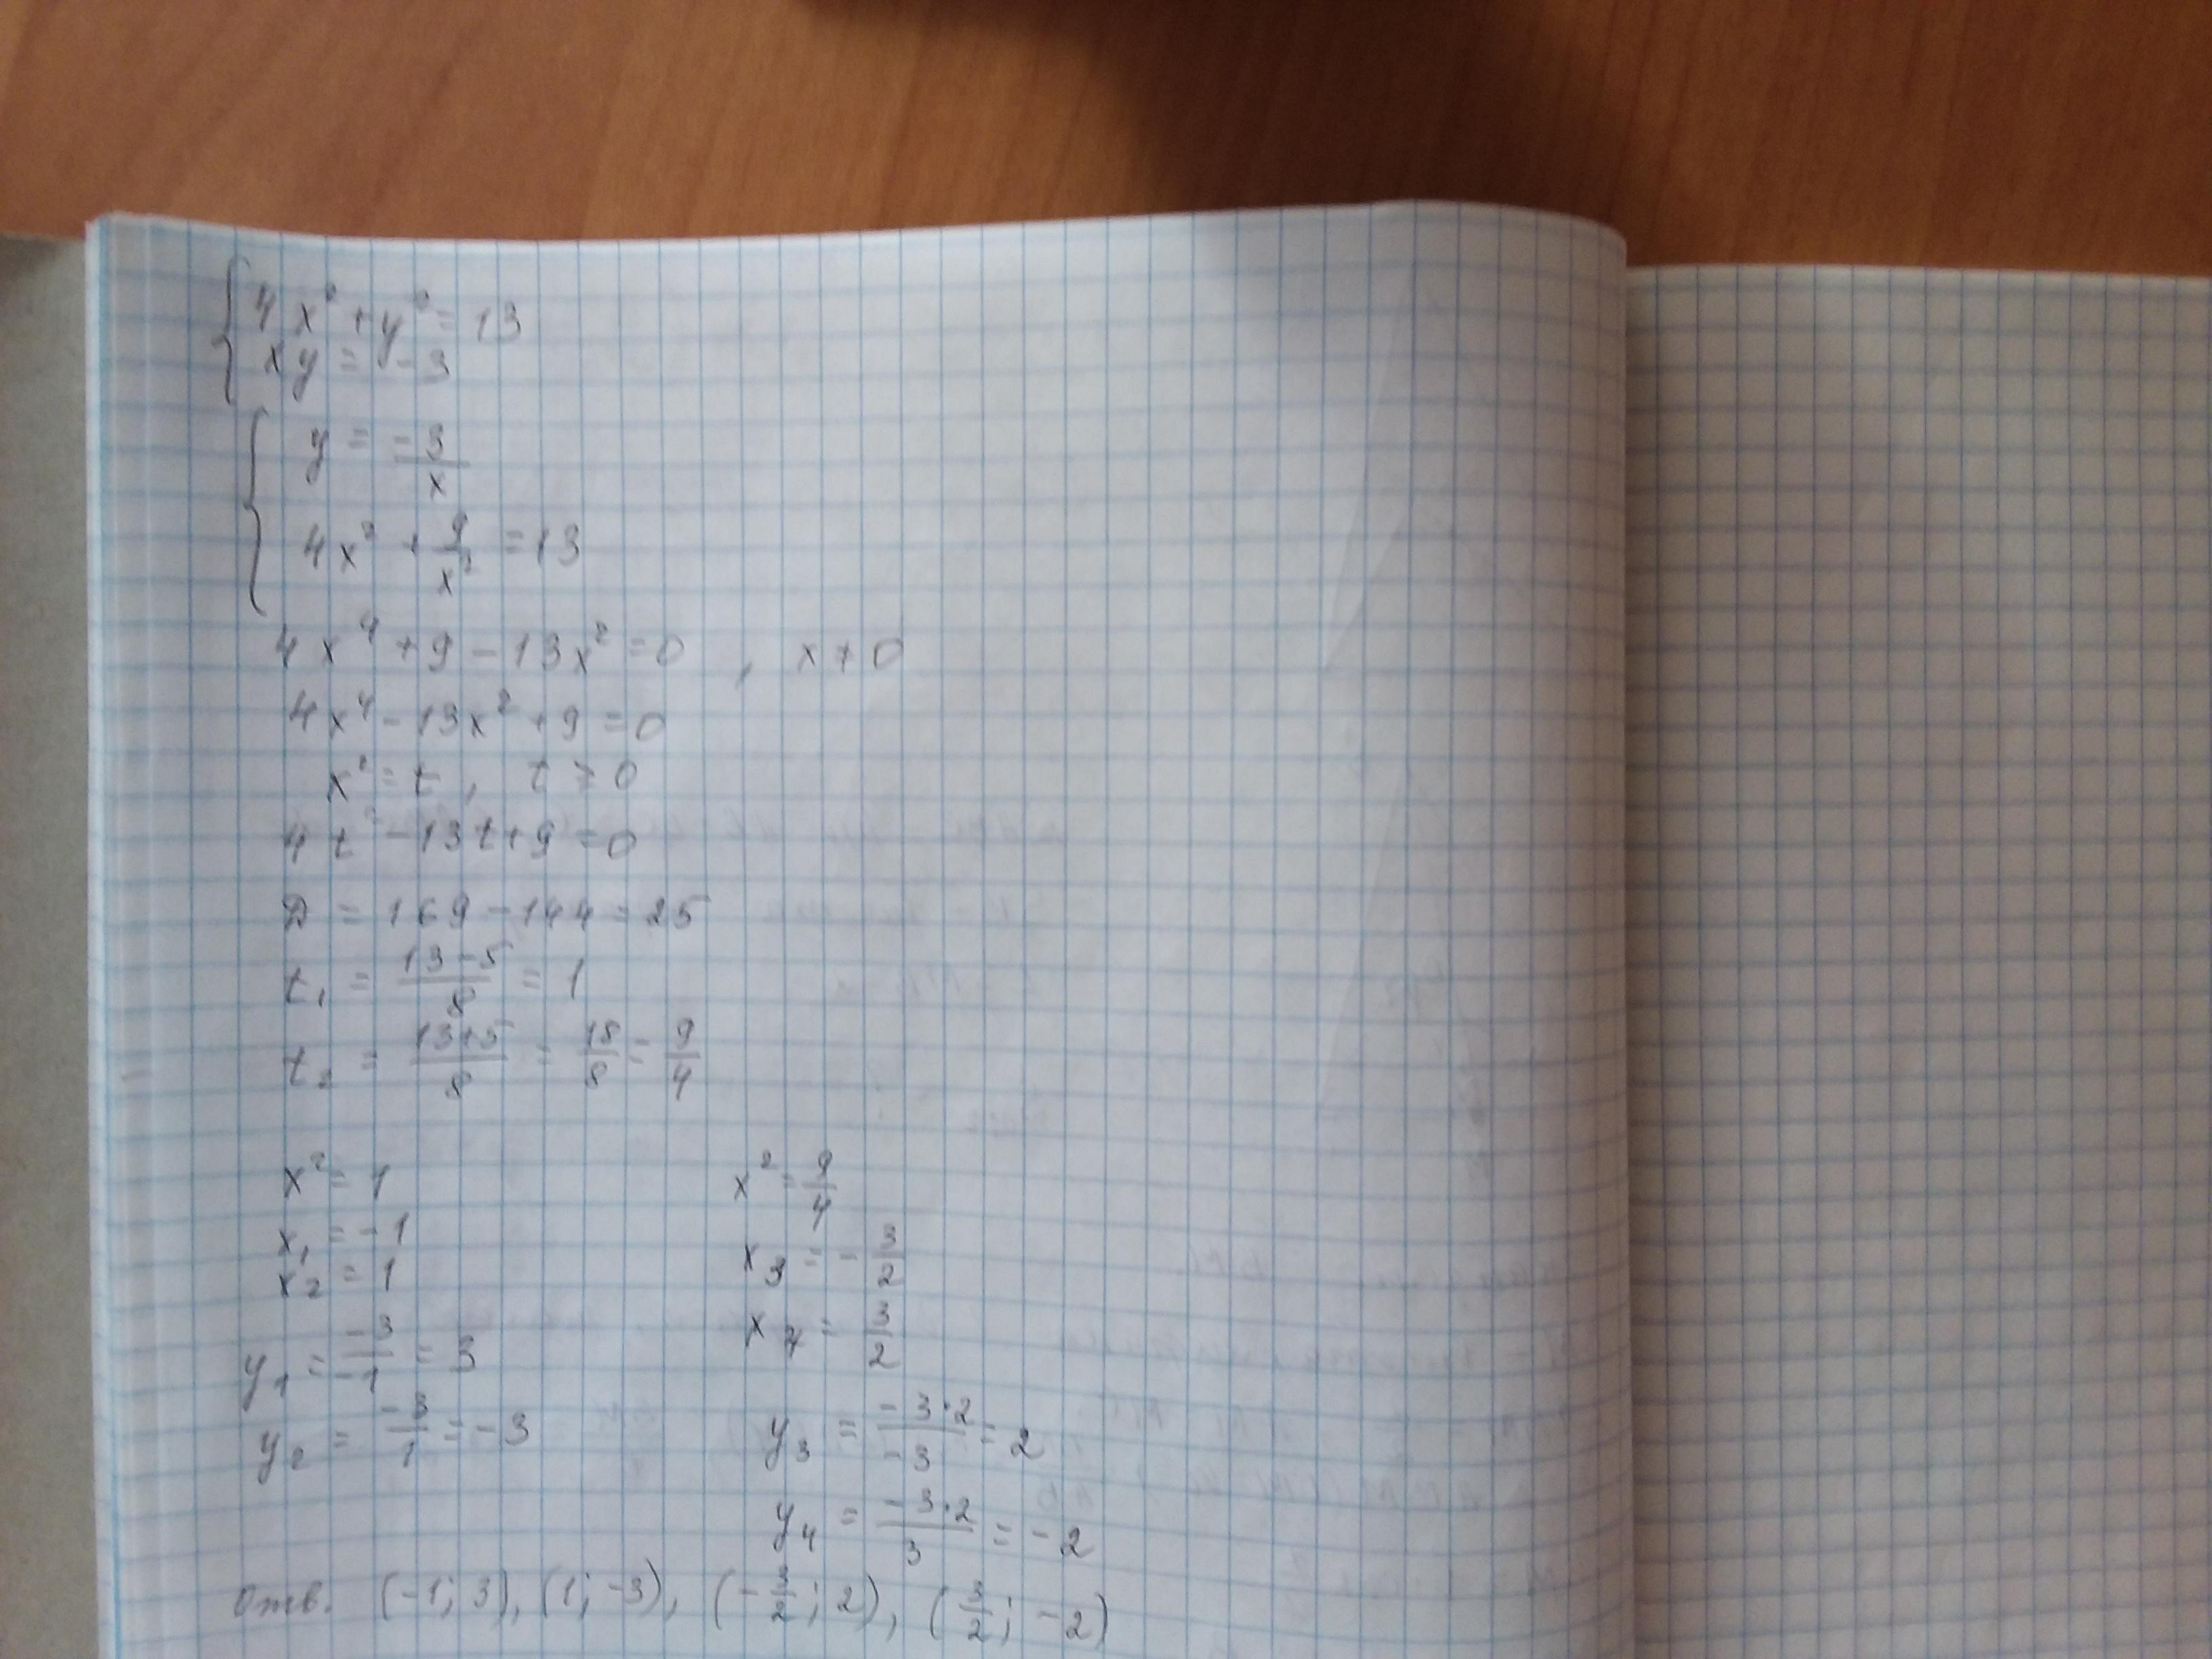 { 4x² + y² = 13
xy = -3
{ y = -3/x
4x² + 9/x² = 13
4x⁴ + 9 - 13x² = 0 , x ≠ 0
4x⁴ - 13x² + 9 = 0
x² = t , t > 0
4t² - 13t + 9 = 0
D = 169 - 144 = 25
t₁ = (13-5)/8 = 1
t₂ = (13+5)/8 = 18/8 = 9/4
x² = 1
x₁ = -1
x₂ = 1
y₁ = -3/-1 = 3
y₂ = -3/1 = -3
x² = 9/4
x₃ = -3/2
x₄ = 3/2
y₃ = (-3·2)/-3 = 2
y₄ = (-3·2)/3 = -2
Отв. (-1; 3), (1; -3), (-3/2; 2), (3/2; -2)